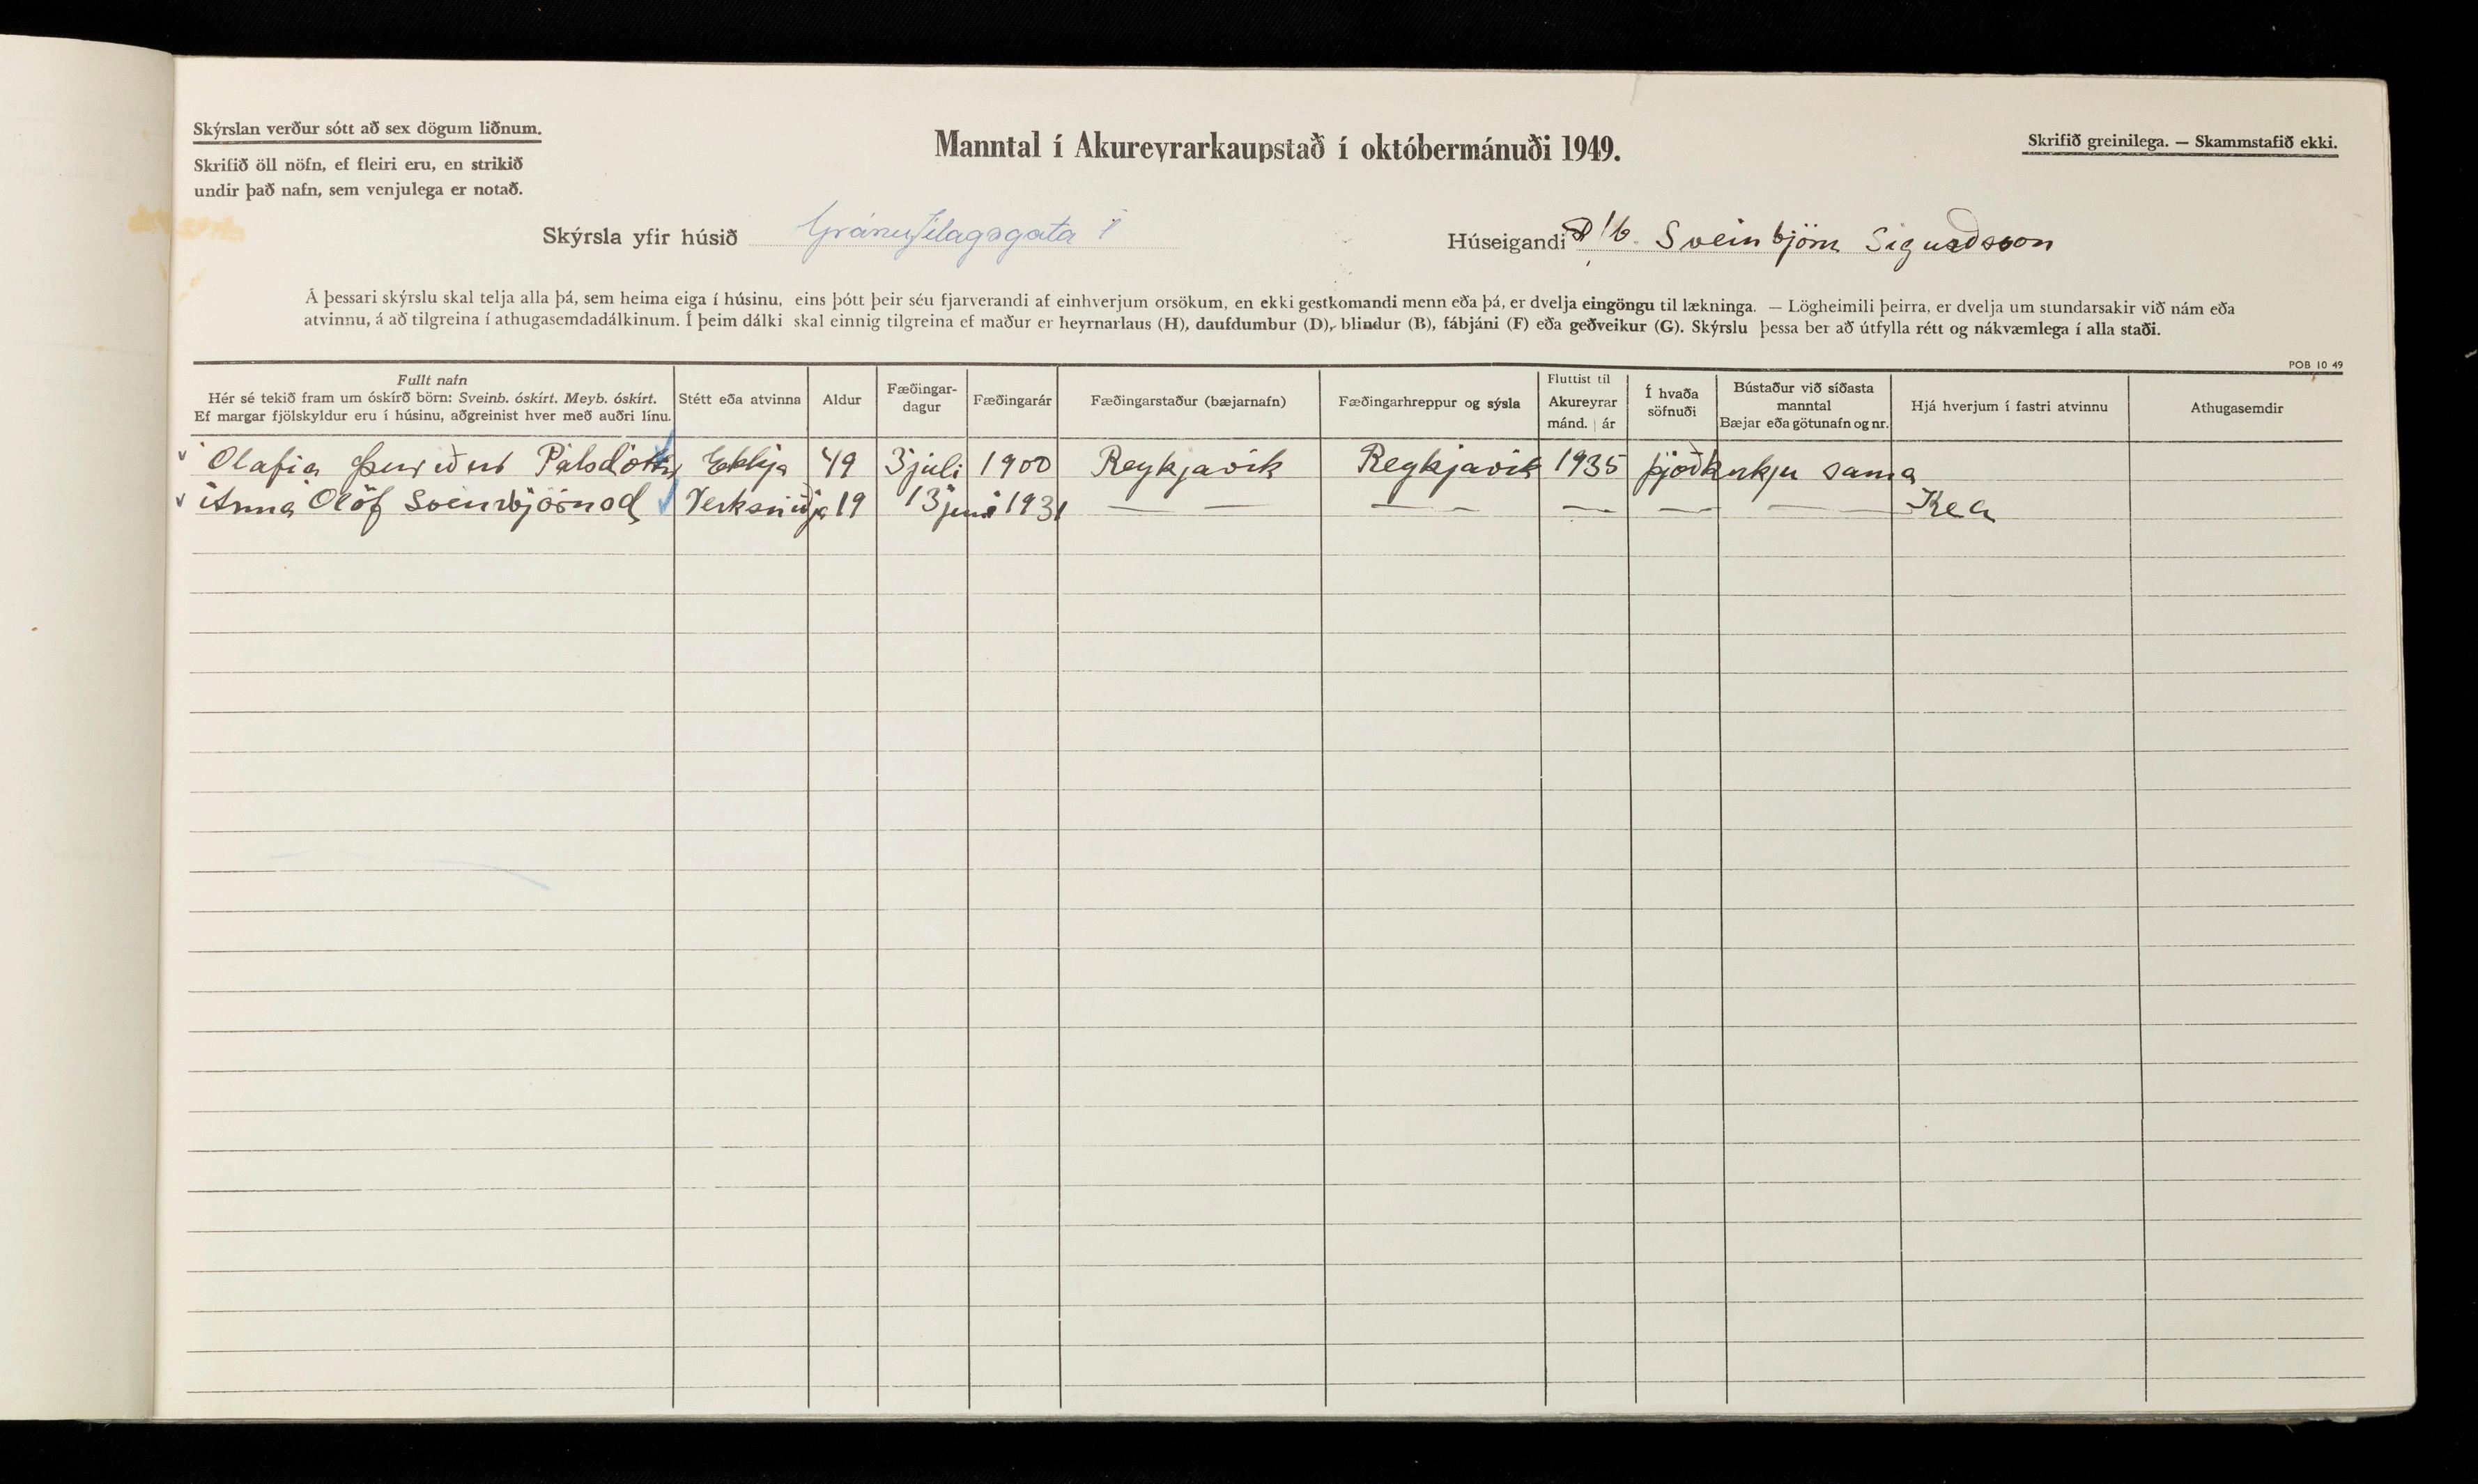 Skýrslan verður sótt að sex dögum liðnum.
Skrifið öll nöfn, ef fleiri eru, en strikið
undir það nafn, sem venjulega er notað.
Manntal í Akureyrarkaupstað í októbermánuði 1949.
Skrifið greinilega. — Skammstafið ekki.
Skýrsla yfir húsið Gránufélagsgata 1
Húseigandi D/b Sveinbjörn Sigurdsson
Á þessari skýrslu skal telja alla þá, sem heima eiga í húsinu, eins þótt þeir séu fjarverandi af einhverjum orsökum, en ekki gestkomandi menn eða þá, er dvelja eingöngu til lækninga. — Lögheimili þeirra, er dvelja um stundarsakir við nám eða
atvinnu, á að tilgreina í athugasemdadálkinum. Í þeim dálki skal einnig tilgreina ef maður er heyrnarlaus (H), daufdumbur (D), blindur (B), fábjáni (F) eða geðveikur (G). Skýrslu þessa ber að útfylla rétt og nákvæmlega í alla staði.
POB 10 49
Fullt nafn
Hér sé tekið fram um óskírð börn: Sveinb. óskírt. Meyb. óskírt.
Ef margar fjölskyldur eru í húsinu, aðgreinist hver með auðri línu.
Stétt eða atvinna
Aldur
Fæðingar-
dagur
Fæðingarár
Fæðingarstaður (bæjarnafn)
Fæðingarhreppur og sýsla
Fluttist til
Akureyrar
mánd. | ár
Í hvaða
söfnuði
Bústaður við síðasta
manntal
Bæjar eða götunafn og nr.
Hjá hverjum í fastri atvinnu
Athugasemdir
Olafia Þuriður Pálsdóttir Ekkja 49 3 júli 1900 Reykjavik Reykjavik 1935 þjóðkirkju sama
Anna Olöf Sveinbjörnsd Verksmiðja 19 13 juni 1931 — — — — — — — — Kea